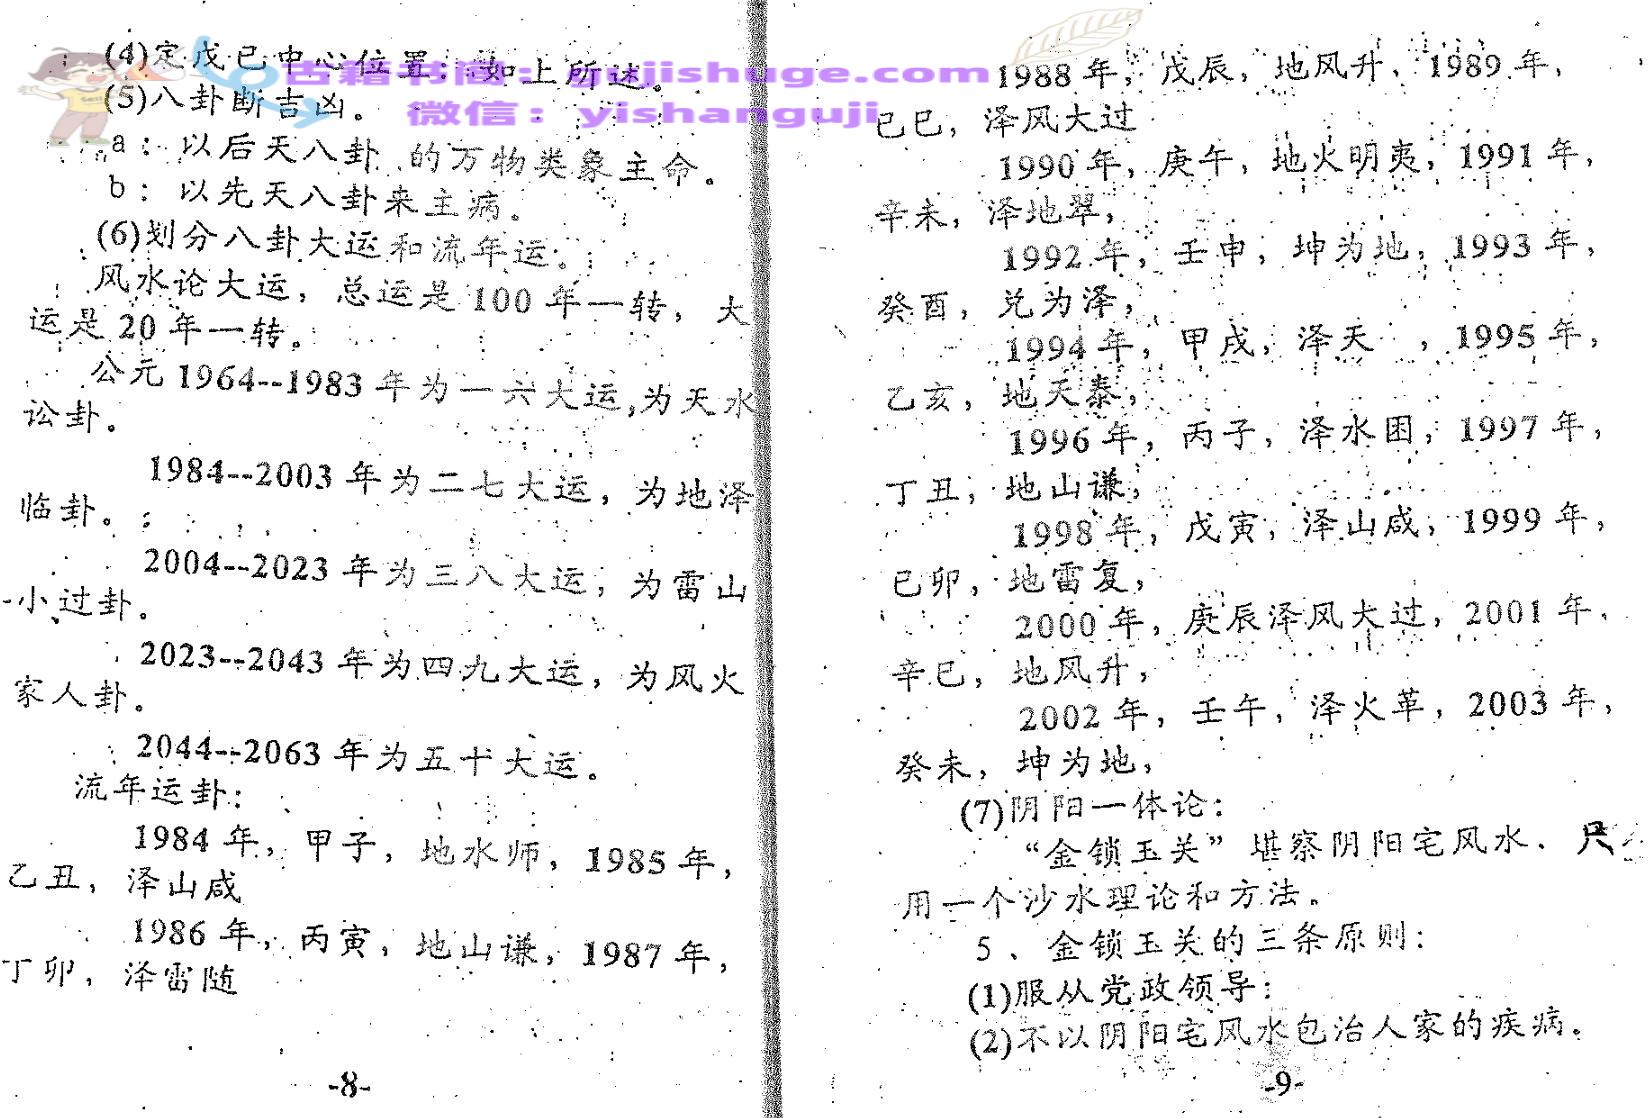 (4)定戊已中心位置：如上所述。
古籍书商：gujishuge.com
(5)八卦断吉凶。
微信：yishanguji
a：以后天八卦 的万物类象主命。
b：以先天八卦来主病。
(6)划分八卦大运和流年运：
风水论大运，总运是100年一转，大
运是20年一转。
公元1964--1983年为一六大运,为天水
讼卦。
1984--2003年为二七大运，为地泽
临卦。
2004--2023年为三八大运，为雷山
小过卦。
2023--2043年为四九大运，为风火
家人卦。
2044--2063年为五十大运。
流年运卦：
1984年，甲子，地水师，1985年，
乙丑，泽山咸
1986年，丙寅，地山谦，1987年，
丁卯，泽雷随
-8-
1988年，戊辰，地风升，1989年，
已巳，泽风大过
1990年，庚午，地火明夷，1991年，
辛未，泽地翠，
1992年，壬申，坤为地，1993年，
癸酉，兑为泽，
1994年，甲戌，泽天 ，1995年，
乙亥，地天泰，
1996年，丙子，泽水困，1997年，
丁丑，地山谦，
1998年，戊寅，泽山咸，1999年，
已卯，地雷复，
2000年，庚辰泽风大过，2001年，
辛巳，地风升，
2002年，壬午，泽火革，2003年，
癸未，坤为地，
(7)阴阳一体论：
“金锁玉关”堪察阴阳宅风水、只
用一个沙水理论和方法。
5、金锁玉关的三条原则：
(1)服从党政领导：
(2)不以阴阳宅风水包治人家的疾病。
-9-